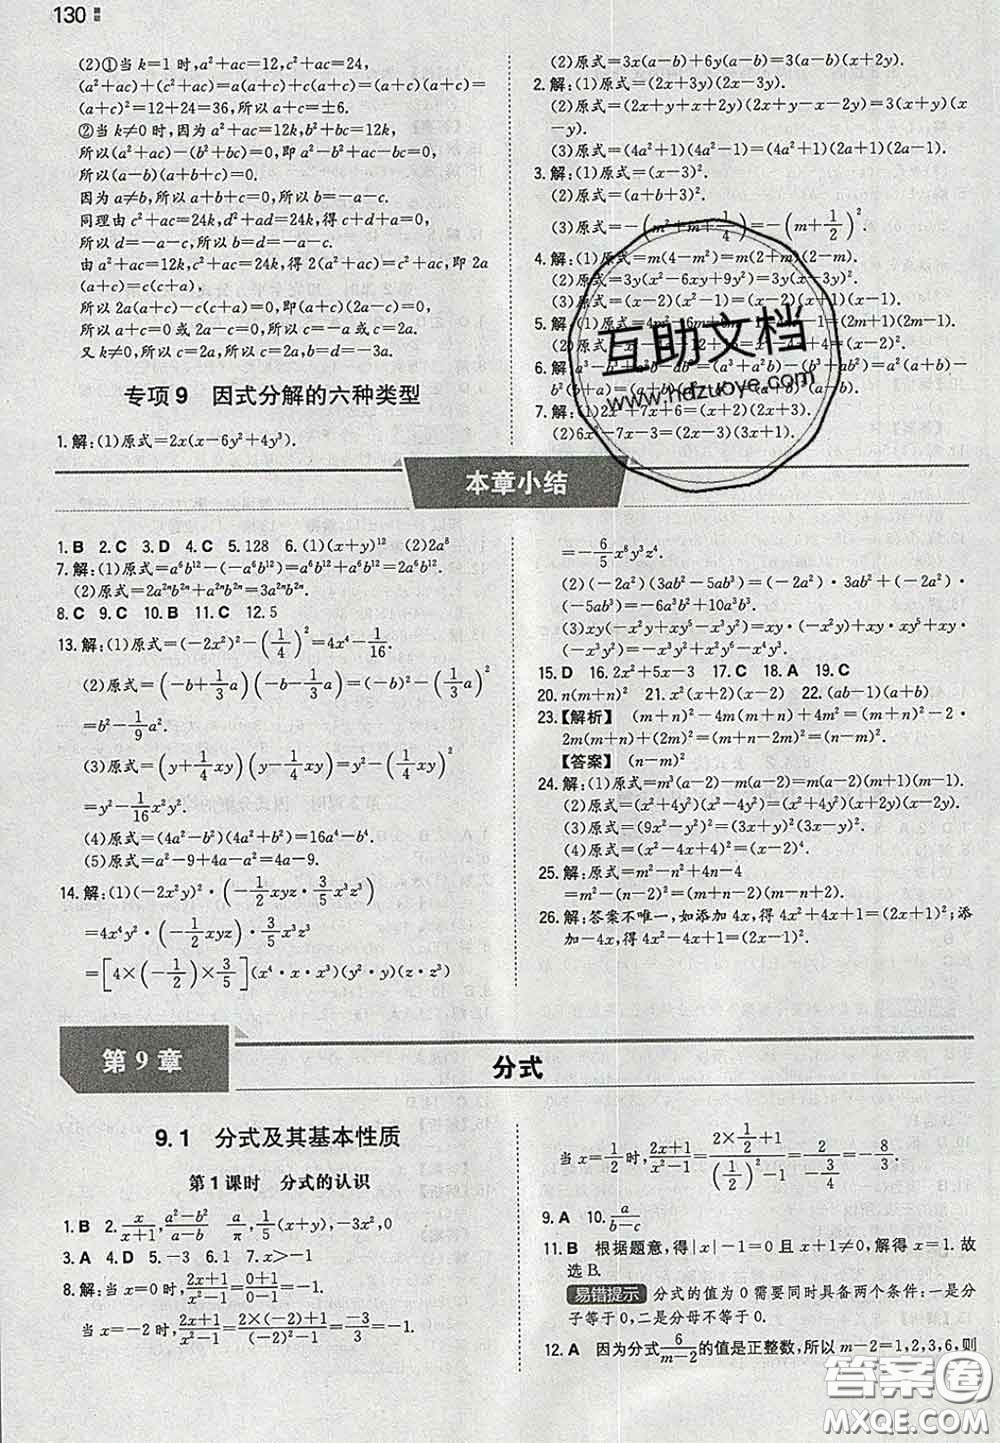 130
(2)①当k=1时,a²+ac=12,c²+ac=24,
(a²+ac)+(c²+ac)=a(a+c)+c(a+c)=(a+c)(a+c)=
(a+c)²=12+24=36,所以a+c=±6.
②当k≠0时,因为a²+ac=12k,b²+bc=12k,
所以(a²+ac)-(b²+bc)=0,即a²-b²+ac-bc=0,
所以(a-b)(a+b+c)=0.
因为a≠b,所以a+b+c=0,所以b=-a-c.
同理由c²+ac=24k,d²+ad=24k,得c+d+a=0,
所以d=-a-c,所以b=d=-a-c.
由a²+ac=12k,c²+ac=24k,得2(a²+ac)=c²+ac,即2a
(a+c)=c(c+a),
所以2a(a+c)-c(a+c)=0,所以(a+c)(2a-c)=0,
所以a+c=0或2a-c=0,所以c=-a或c=2a.
又k≠0,则c=2a,所以b=d=-a-2a=-3a.
专项9 因式分解的六种类型
1.解:(1)原式=2x(x-6y²+4y³).
(2)原式=3x(a-b)+6y(a-b)=3(a-b)(x+2y).
2.解:(1)原式=(2x+3y)(2x-3y).
(2)原式=(2x+y+x+2y)(2x+y-x-2y)=3(x+y)(x
-y).
(3)原式=(4a²+1)(4a²-1)=(4a²+1)(2a+1)(2a-1).
3.解:(1)原式=(x-3)².
(2)原式=(a+b+3)².
(3)原式=-(m²+m+1/4)=-(m+1/2)².
4.解:(1)原式=m(4-m²)=m(2+m)(2-m).
(2)原式=3y(x²-6xy+9y²)=3y(x-3y)².
(3)原式=(x²)(x²-1)=(x+1)(x-1).
5.解:(1)原式=4m²-1=(2m+1)(2m-1).
(2)原式
6.解
b²(b+a)=(a+b)(a²-b²)=(a+b)²(a-b).
7.解:(1)2x²+7x+6=(x+2)(2x+3).
(2)6x²-7x-3=(2x-3)(3x+1).
互助文档
www.hdzuoye.com
本章小结
1.B 2.C 3.D 4.C 5.128 6.(1)(x+y)¹² (2)2a⁸
7.解:(1)原式=a⁶b¹²-(-a⁶b¹²)=a⁶b¹²+a⁶b¹²=2a⁶b¹².
(2)原式=2a²ⁿb²ⁿ+a²ⁿb²ⁿ=3a²ⁿb²ⁿ.
8.C 9.C 10.B 11.C 12.5
13.解:(1)原式=(-2x²)²-(1/4)²=4x⁴-1/16.
(2)原式=(-b+1/3a)(-b-1/3a)=(-b)²-(1/3a)²
=b²-1/9a².
(3)原式=(y+1/4xy)(y-1/4xy)=y²-(1/4xy)²
=y²-1/16x²y².
(4)原式=(4a²-b²)(4a²+b²)=16a⁴-b⁴.
(5)原式=a²-9+4a-a²=4a-9.
14.解:(1)(-2x²y)²·(-1/2xyz·3/5x³z³)
=4x⁴y²·(-1/2xyz)·3/5x³z³
=[4×(-1/2)×3/5](x⁴·x·x³)(y²·y)(z·z³)
=-6/5x⁸y³z⁴.
(2)(-2a²)(3ab²-5ab³)=(-2a²)·3ab²+(-2a²)·
(-5ab³)=-6a³b²+10a³b³.
(3)xy(-x²y+xy⁵-x³y²)=xy·(-x²y)+xy·xy⁵+xy·
(-x³y²)=-x³y²+x²y⁶-x⁴y³.
15.D 16.2x²+5x-3 17.C 18.A 19.C
20.n(m+n)² 21.x²(x+2)(x-2) 22.(ab-1)(a+b)
23.【解析】 (m+n)²-4m(m+n)+4m²=(m+n)²-2·
2m(m+n)+(2m)²=(m+n-2m)²=(n-m)².
【答案】 (n-m)²
24.解:(1)原式=m³(a-2)-m(a-2)=m(a-2)(m+1)(m-1).
(2)原式=(x²+4y²)(x²-4y²)=(x²+4y²)(x+2y)(x-2y).
(3)原式=(9x²-y²)²=(3x+y)²(3x-y)².
(4)原式=(x²-4x+4)²=(x-2)⁴.
25.解:原式=m²-n²+4n-4
=m²-(n-2)²=(m+n-2)(m-n+2).
26.解:答案不唯一,如添加4x,得4x²+4x+1=(2x+1)²;添
加-4x,得4x²-4x+1=(2x-1)².
第9章
分式
9.1 分式及其基本性质
第1课时 分式的认识
1.B 2.x/(x+1),(a²-b²)/(a-b) a/π,1/5(x+y),-3x²,0
3.A 4.D 5.-3 6.1 7.x>-1
8.解:当x=0时,(2x+1)/(x²-1)=(0+1)/(0-1)=-1.
当x=-2时,(2x+1)/(x²-1)=(2×(-2)+1)/((-2)²-1)=-1.
当x=1/2时,(2x+1)/(x²-1)=(2×1/2+1)/((1/2)²-1)=2/(-3/4)=-8/3.
9.A 10.a/(b-c)
11.B 根据题意,得|x|-1=0且x+1≠0,解得x=1.故
选B.
易错提示 分式的值为0需要同时具备两个条件:一是分
子等于0,二是分母不等于0.
12.A 因为分式6/(m-2)的值是正整数,所以m-2=1,2,3,6,则
答案圈
MXQE.COM